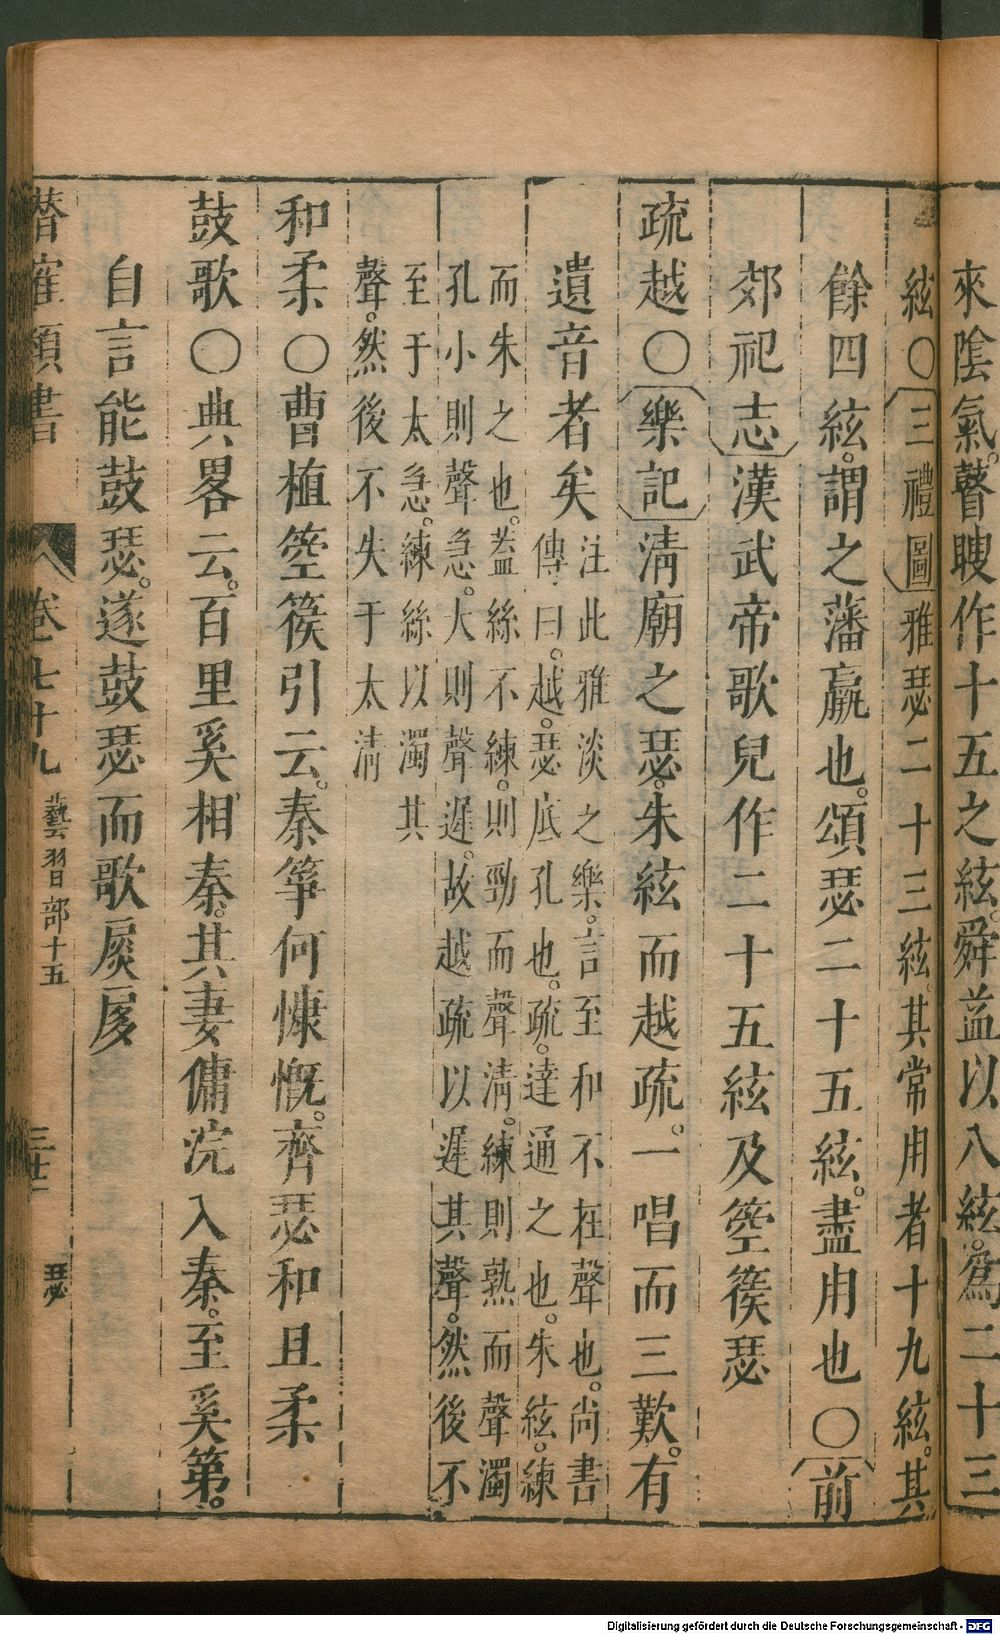 來陰氣。瞽瞍作十五之絃。舜益以八絃。爲二十三
絃〇三禮圖雅瑟二十三絃。其常用者十九絃。其
餘四絃。謂之藩嬴也。頌瑟二十五絃。盡用也〇前
郊祀志漢武帝歌兒作二十五絃及箜篌瑟
疏越〇樂記淸廟之瑟。朱絃而越疏。一唱而三歎。有
遺音者矣
注此雅淡之樂。言至和不在聲也。尚書
傳曰。越。瑟底孔也。疏。達通之也。朱絃。練
而朱之也。蓋絲不練。則勁而聲淸。練則熟而聲濁
孔小則聲急。大則聲遲。故越疏以遲其聲。然後不
至于太急。練絲以濁其
聲。然後不失于太淸
和柔〇曹植箜篌引云。秦箏何慷慨。齊瑟和且柔
鼓歌〇典畧云。百里奚相秦。其妻傭浣入秦。至奚第。
自言能鼓瑟。遂鼓瑟而歌扊扅
潛確類書 卷七十九 藝習部十五 瑟
Digitalisierung gefördert durch die Deutsche Forschungsgemeinschaft - DFG